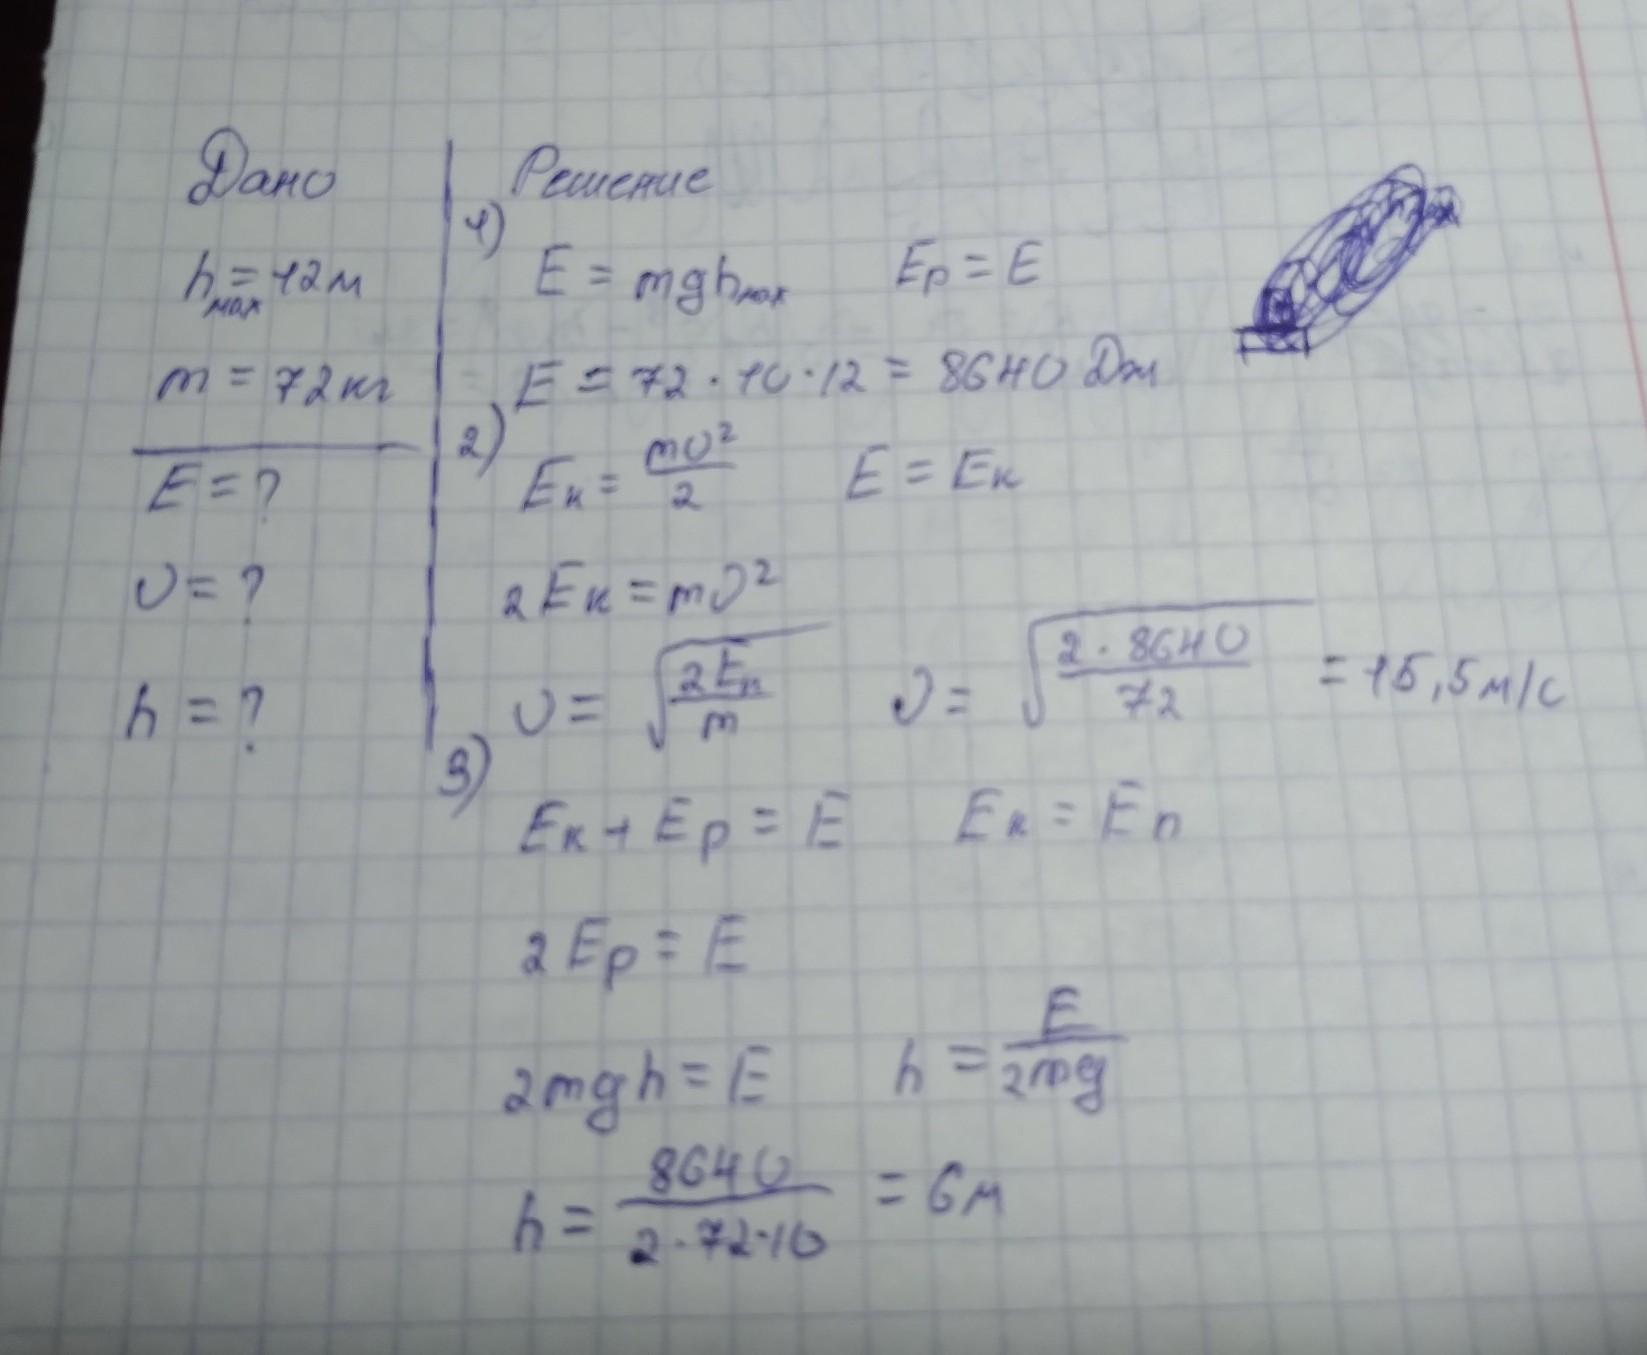 Дано
hмах = 12м
m = 72кг
E = ?
υ = ?
h = ?
Решение
1)
E = mghмах   Ep = E
E = 72 · 10 · 12 = 8640 Дж
2)
Eк = mυ²/2   E = Eк
2Eк = mυ²
υ = √(2Eк/m)   υ = √(2 · 8640/72) = 15,5м/с
3)
Eк + Ep = E   Eк = Eп
2Ep = E
2mgh = E   h = E/2mg
h = 8640/2·72·10 = 6м